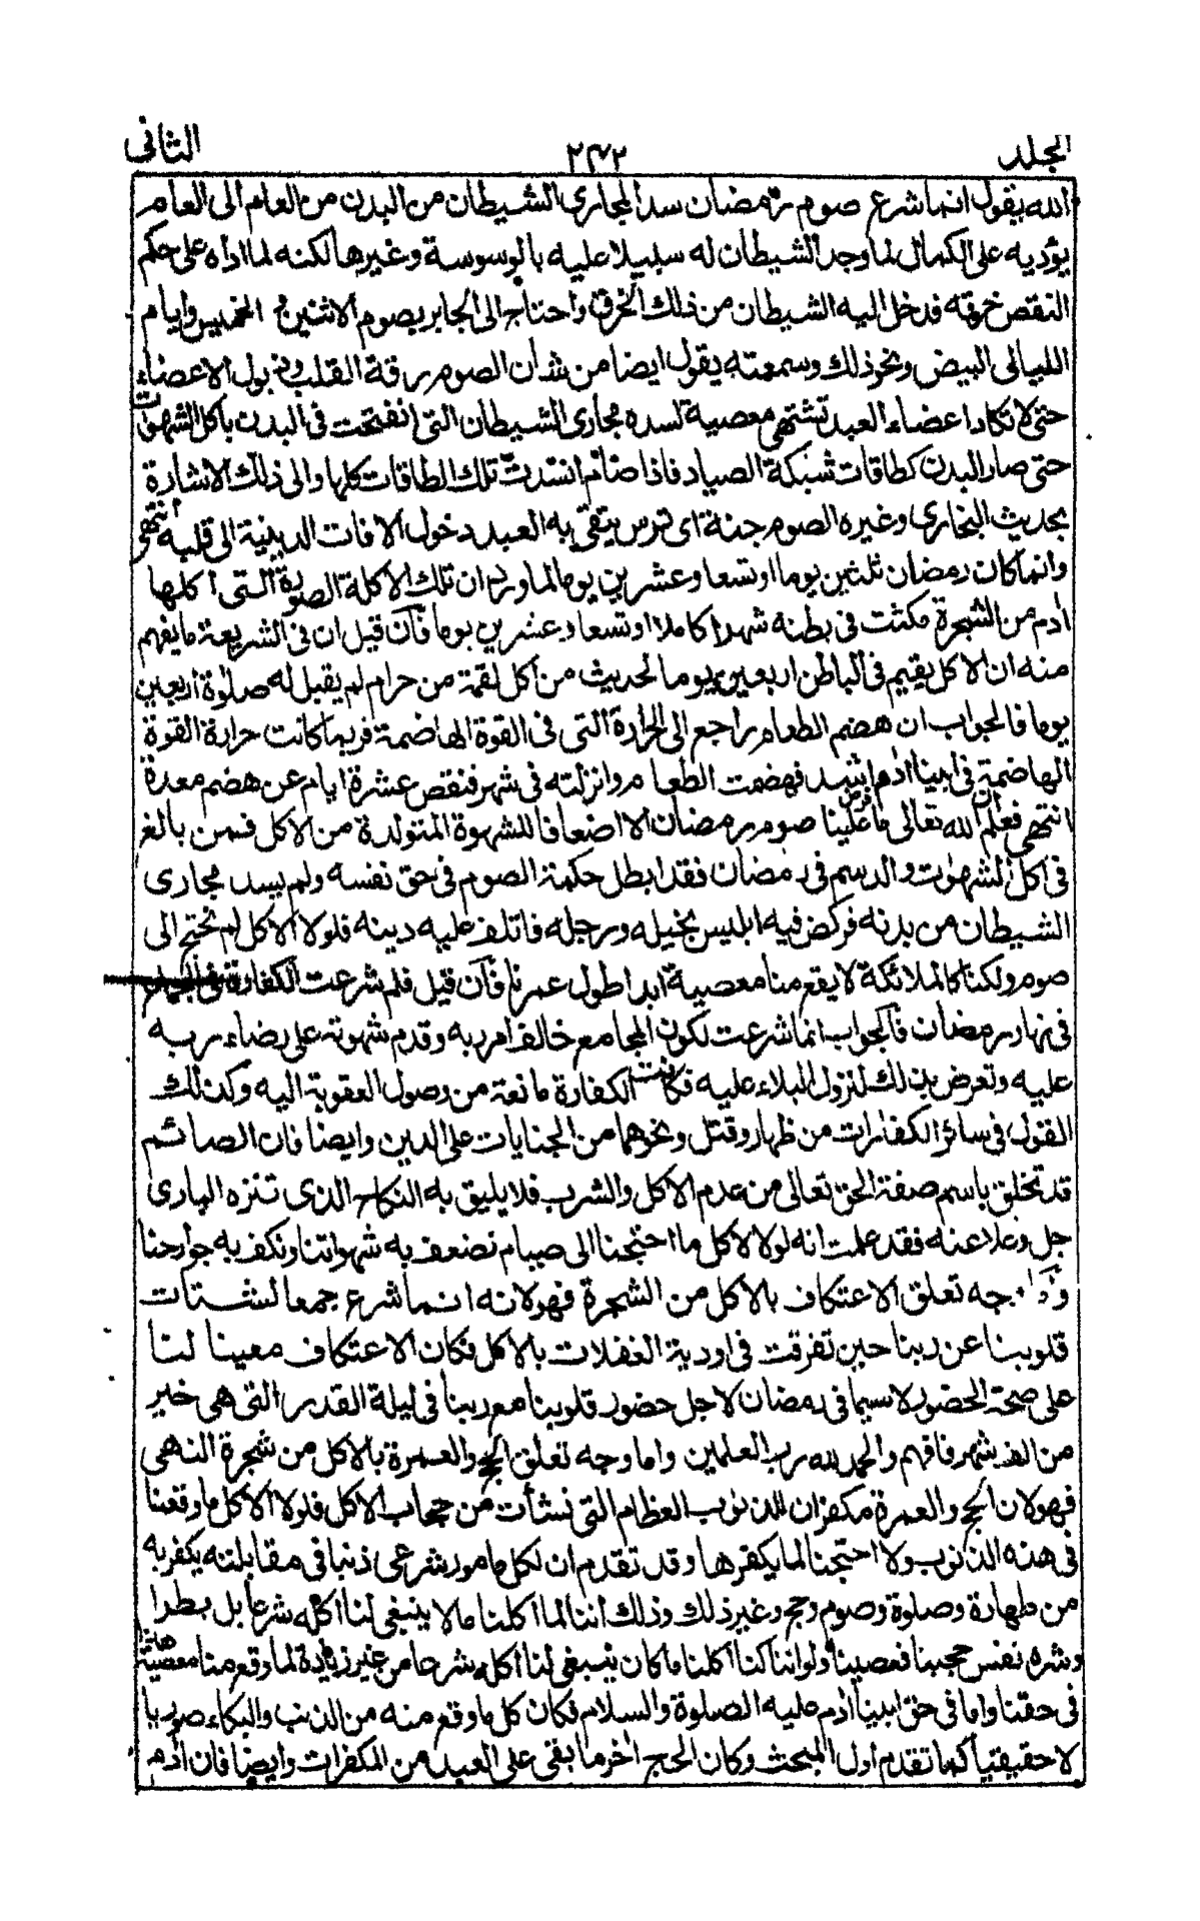 المجلد ٢٤٢ الثانى
الله يقول انما شرع صوم رمضان سدا لمجارى الشيطان من البدن من العام الى العام
يؤديه على الكمال لما وجد الشيطان له سبيلا عليه بالوسوسة وغيرها لكنه لما اداه على حكم
النقص خرقه فدخل اليه الشيطان من ذلك الخرق واحتاج الى الجابر بصوم الاثنين والخميس وايام
الليالى البيض ونحو ذلك وسمعته يقول ايضا من شان الصوم رقة القلب وذبول الاعضاء
حتى لا تكاد اعضاء العبد تشتهى معصية لسده مجارى الشيطان التى انفتحت فى البدن بأكل الشهوات
حتى صار البدن كطاقات شبكة الصياد فاذا صام انسدت تلك الطاقات كلها والى ذلك الاشارة
بحديث البخارى وغيره الصوم جنة اى ترس يتقى به العبد دخول الافات الدينية الى قلبه انتهى
وانما كان رمضان ثلثين يوما او تسعا وعشرين يوما لما ورد ان تلك الاكلة الصورية التى اكلها
ادم من الشجرة مكثت فى بطنه شهرا كاملا او تسعا وعشرين يوما فان قيل ان فى الشريعة ما يفهم
منه ان الاكل يقيم فى الباطن اربعين يوما لحديث من اكل لقمة من حرام لم يقبل له صلوة اربعين
يوما فالجواب ان هضم الطعام راجع الى الحرارة التى فى القوة الهاضمة فربما كانت حرارة القوة
الهاضمة فى ابينا ادم اشد فهضمت الطعام وانزلته فى شهر فنقص عشرة ايام عن هضم معدة
انتهى فعلم ان الله تعالى ما فرض علينا صوم رمضان الا اضعافا للشهوة المتولدة من الاكل فمن بالغ
فى اكل الشهوات والدسم فى رمضان فقد ابطل حكمة الصوم فى حق نفسه ولم يسد مجارى
الشيطان من بدنه فركض فيه ابليس بخيله ورجله فاتلف عليه دينه فلولا الاكل لم نحتج الى
صوم ولكنا كالملائكة لا يقع منا معصية ابدا طول عمرنا فان قيل فلم شرعت الكفارة فى الجماع
فى نهار رمضان فالجواب انما شرعت لكون المجامع خالف امر ربه وقدم شهوته على رضاء ربه
عليه وتعرض بذلك لنزول البلاء عليه فكانت الكفارة مانعة من وصول العقوبة اليه وكذلك
القول فى سائر الكفارات من ظهار وقتل ونحوهما من الجنايات على الدين وايضا فان الصائم
قد تخلق باسم صفة الحق تعالى من عدم الاكل والشرب فلا يليق به النكاح الذى تنزه البارى
جل وعلا عنه فقد علمت انه لولا الاكل ما احتجنا الى صيام نضعف به شهواتنا ونكف به جوارحنا
وجه تعلق الاعتكاف بالاكل من الشجرة فهو لانه انما شرع جمعا لشتات
قلوبنا عن ربنا حين تفرقت فى اودية الغفلات بالاكل فكان الاعتكاف معينا لنا
على صحة الحضور لا سيما فى رمضان لاجل حضور قلوبنا مع ربنا فى ليلة القدر التى هى خير
من الف شهر فافهم والحمد لله رب العلمين واما وجه تعلق الحج والعمرة بالاكل من شجرة النهى
فهو لان الحج والعمرة مكفران للذنوب العظام التى نشأت من حجاب الاكل فلولا الاكل ما وقعنا
فى هذه الذنوب ولا احتجنا لما يكفرها وقد تقدم ان لكل مامور شرعى ذنبا فى مقابلته يكفر به
من طهارة وصلوة وصوم وحج وغير ذلك وذلك اننا لما اكلنا ما لا ينبغى لنا اكله شرعا بل بطرا
وشره نفس حجبنا فعصينا ولو اننا كنا اكلنا ما كان ينبغى لنا اكله شرعا من غير زيادة لما وقع منا معصية هذا
فى حقنا واما فى حق ابينا ادم عليه الصلوة والسلام فكان كل ما وقع منه من الذنب والبكاء صوريا
لا حقيقيا كما تقدم اول المبحث وكان الحج اخر ما ابقى على العبد من المكفرات وايضا فان ادم